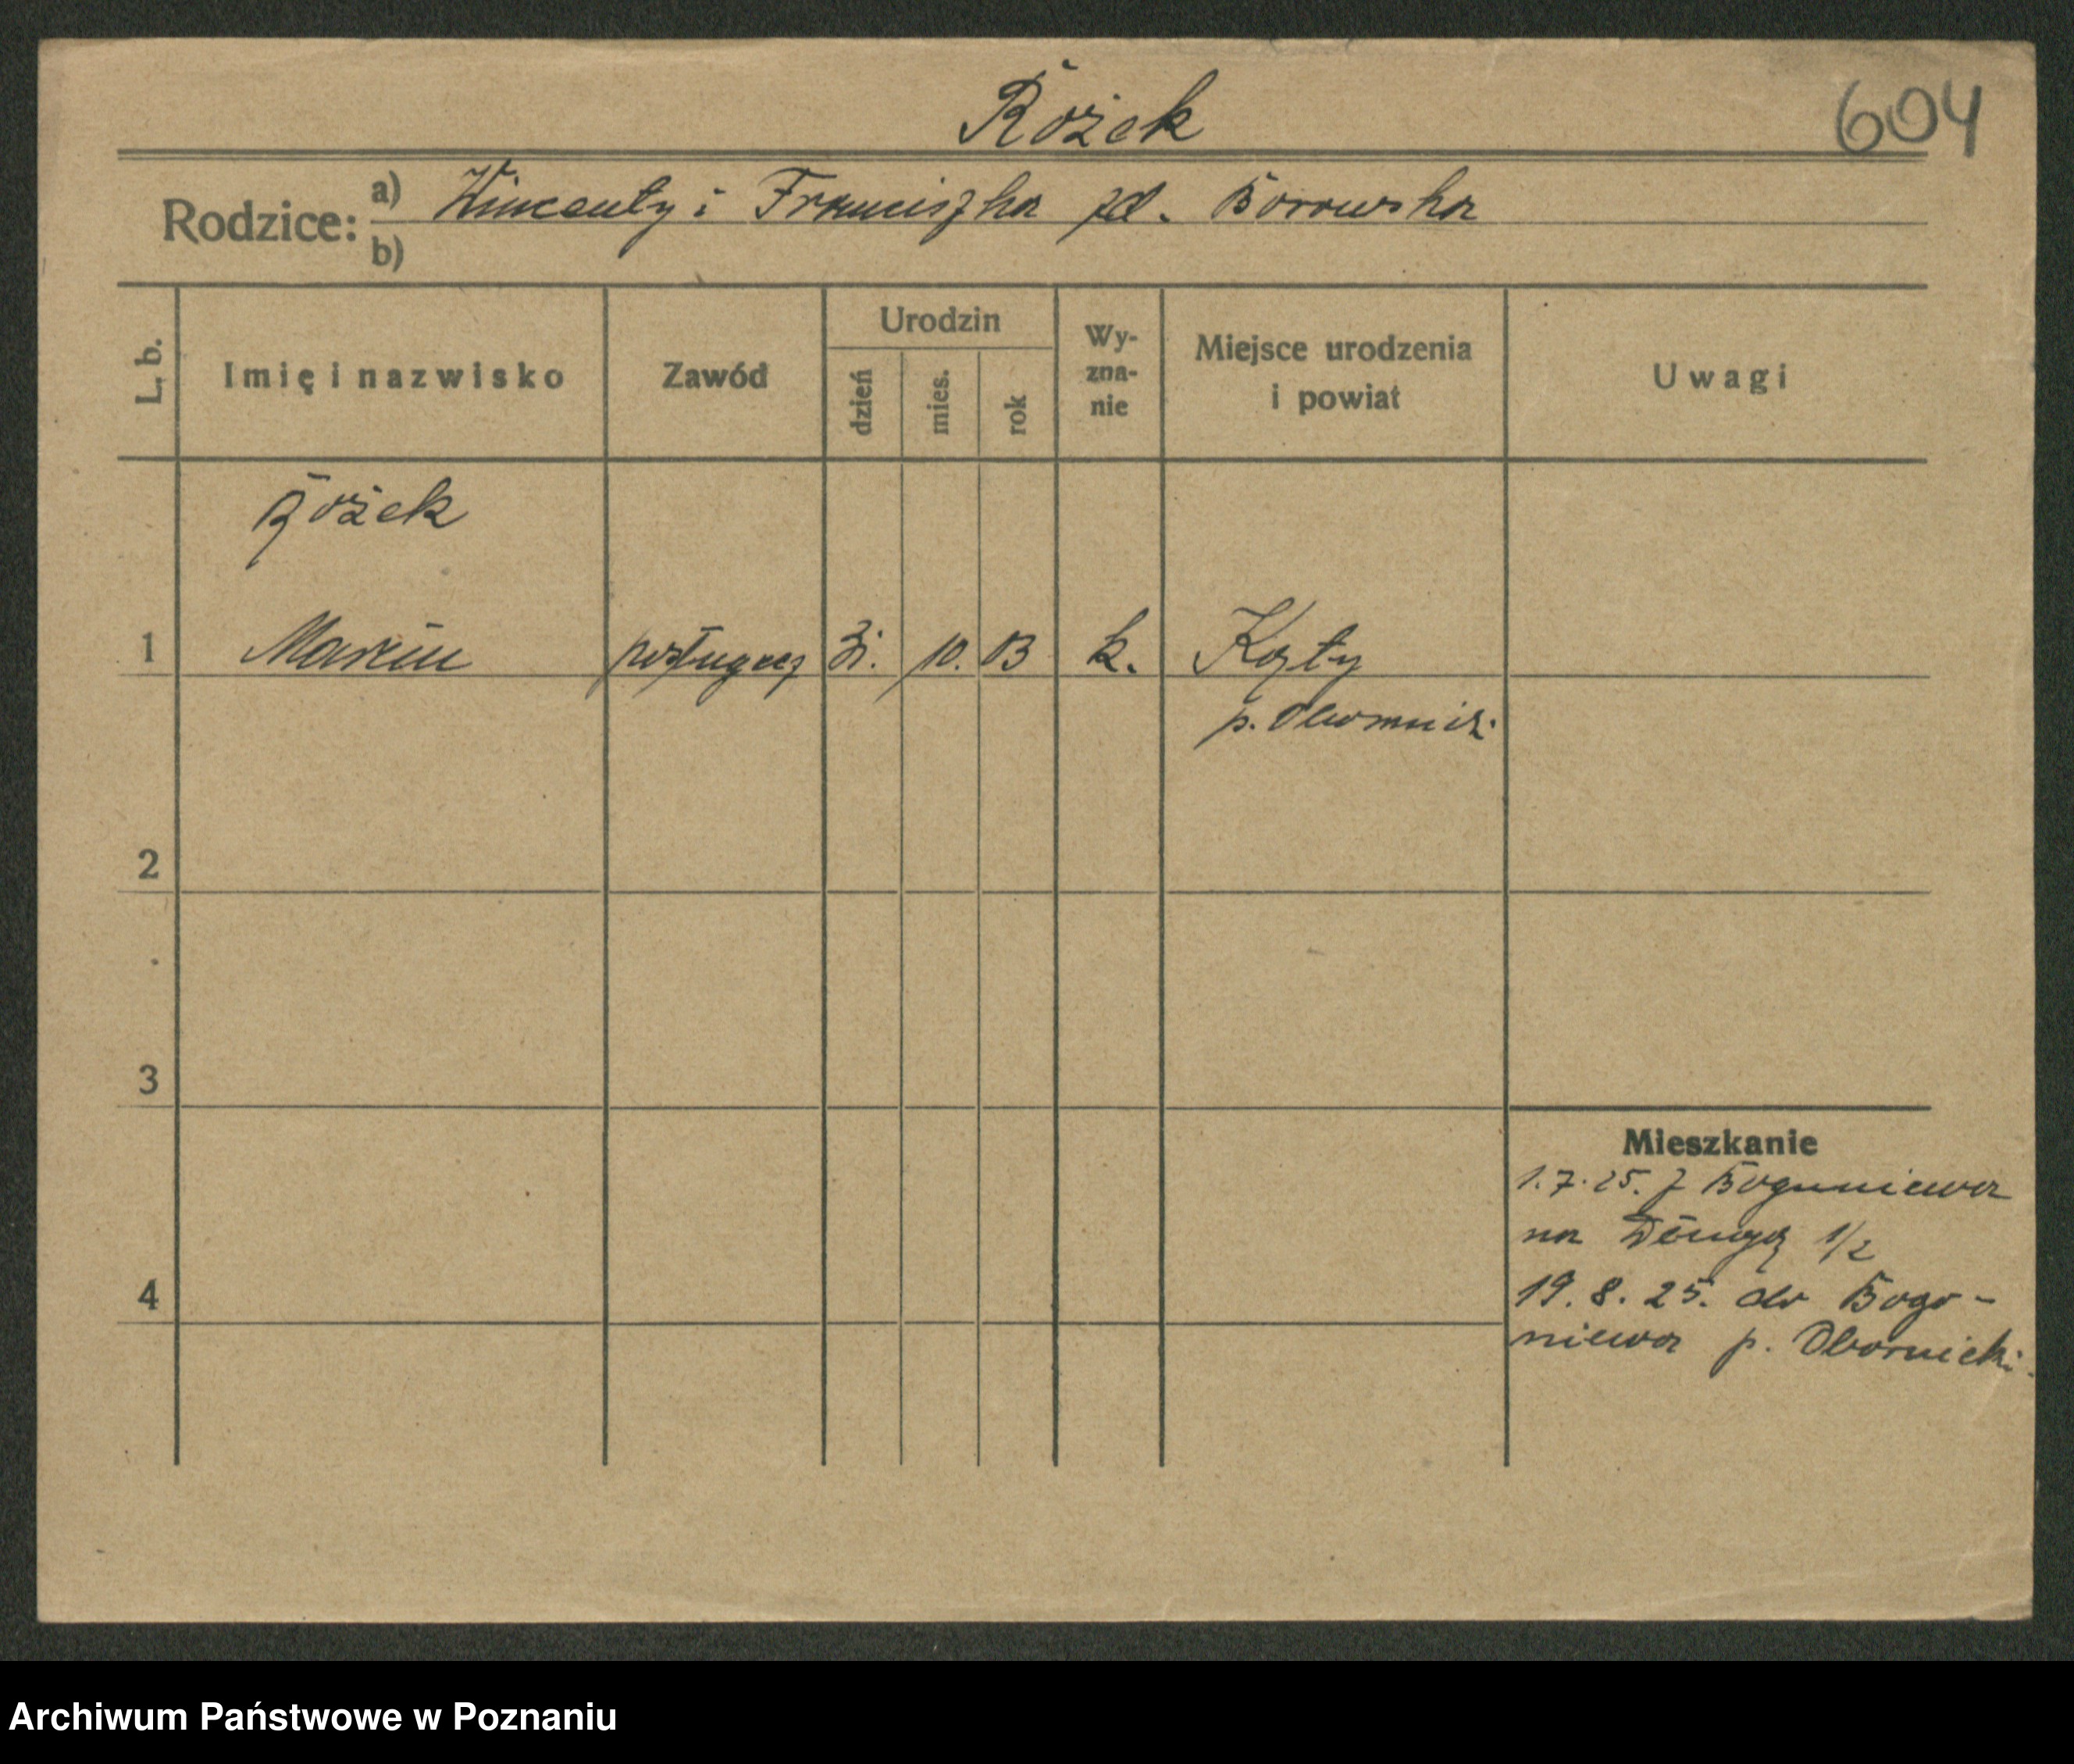 Rożek
604
Rodzice: a) Wincenty i Franciszka zd. Borowska
b)
L. b.
Imię i nazwisko
Zawód
Urodzin
dzień
mies.
rok
Wy-
zna-
nie
Miejsce urodzenia
i powiat
Uwagi
Rożek
1 Marcin posługacz 31. 10. 03 k.
p.
2
3
4
Mieszkanie
1.7.25. z Boguniewa
na Długą 1/2
19.8.25. do Bogo-
niewa p. Obornicki.
Archiwum Państwowe w Poznaniu